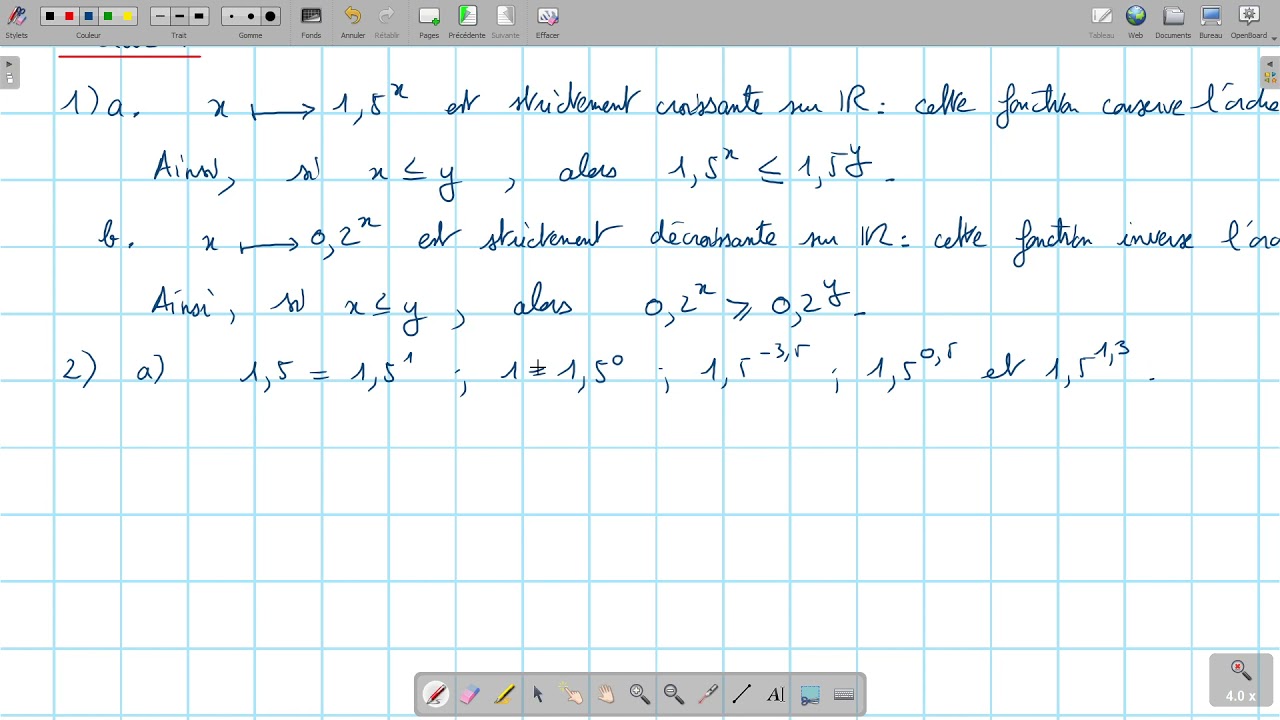 Stylets Couleur Trait Gomme Fonds Annuler Rétablir Pages Précédente Suivante Effacer Tableau Web Documents Bureau OpenBoard
1) a. x ⟼ 1,5^x est strictement croissante sur ℝ : cette fonction conserve l'ordre
Ainsi, si x ≤ y , alors 1,5^x ≤ 1,5^y.
b. x ⟼ 0,2^x est strictement décroissante sur ℝ : cette fonction inverse l'ord
Ainsi, si x ≤ y , alors 0,2^x ⩾ 0,2^y.
2) a) 1,5 = 1,5^1 ; 1 = 1,5^0 ; 1,5^-3,5 ; 1,5^0,5 et 1,5^1,3 .
4.0 x